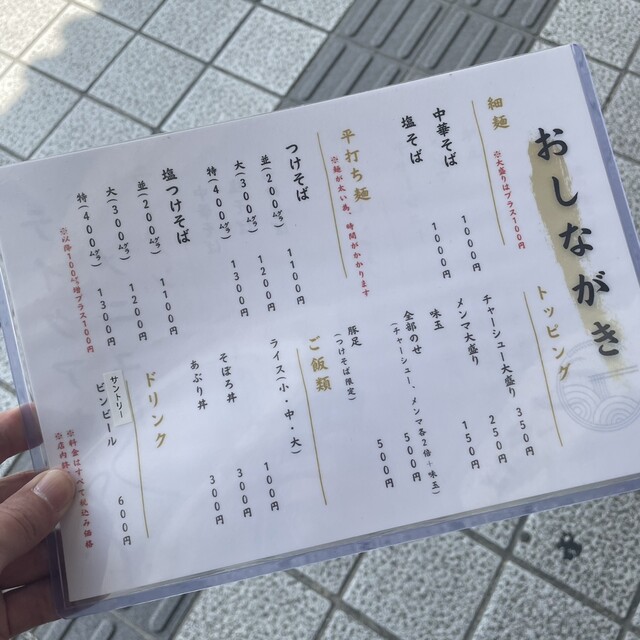 おしながき
細麺
※大盛りはプラス100円
中華そば 1000円
塩そば 1000円
平打ち麺
※麺が太い為、時間がかかります
つけそば
並(200㌘) 1100円
大(300㌘) 1200円
特(400㌘) 1300円
塩つけそば
並(200㌘) 1100円
大(300㌘) 1200円
特(400㌘) 1300円
※以降100㌘増プラス100円
トッピング
チャーシュー大盛り 350円
メンマ大盛り 250円
味玉 150円
全部のせ 500円
(チャーシュー、メンマ各2倍+味玉)
豚足 500円
(つけそば限定)
ご飯類
ライス(小・中・大) 100円
そぼろ丼 300円
あぶり丼 300円
ドリンク
サントリー
ビンビール 600円
※料金はすべて税込み価格